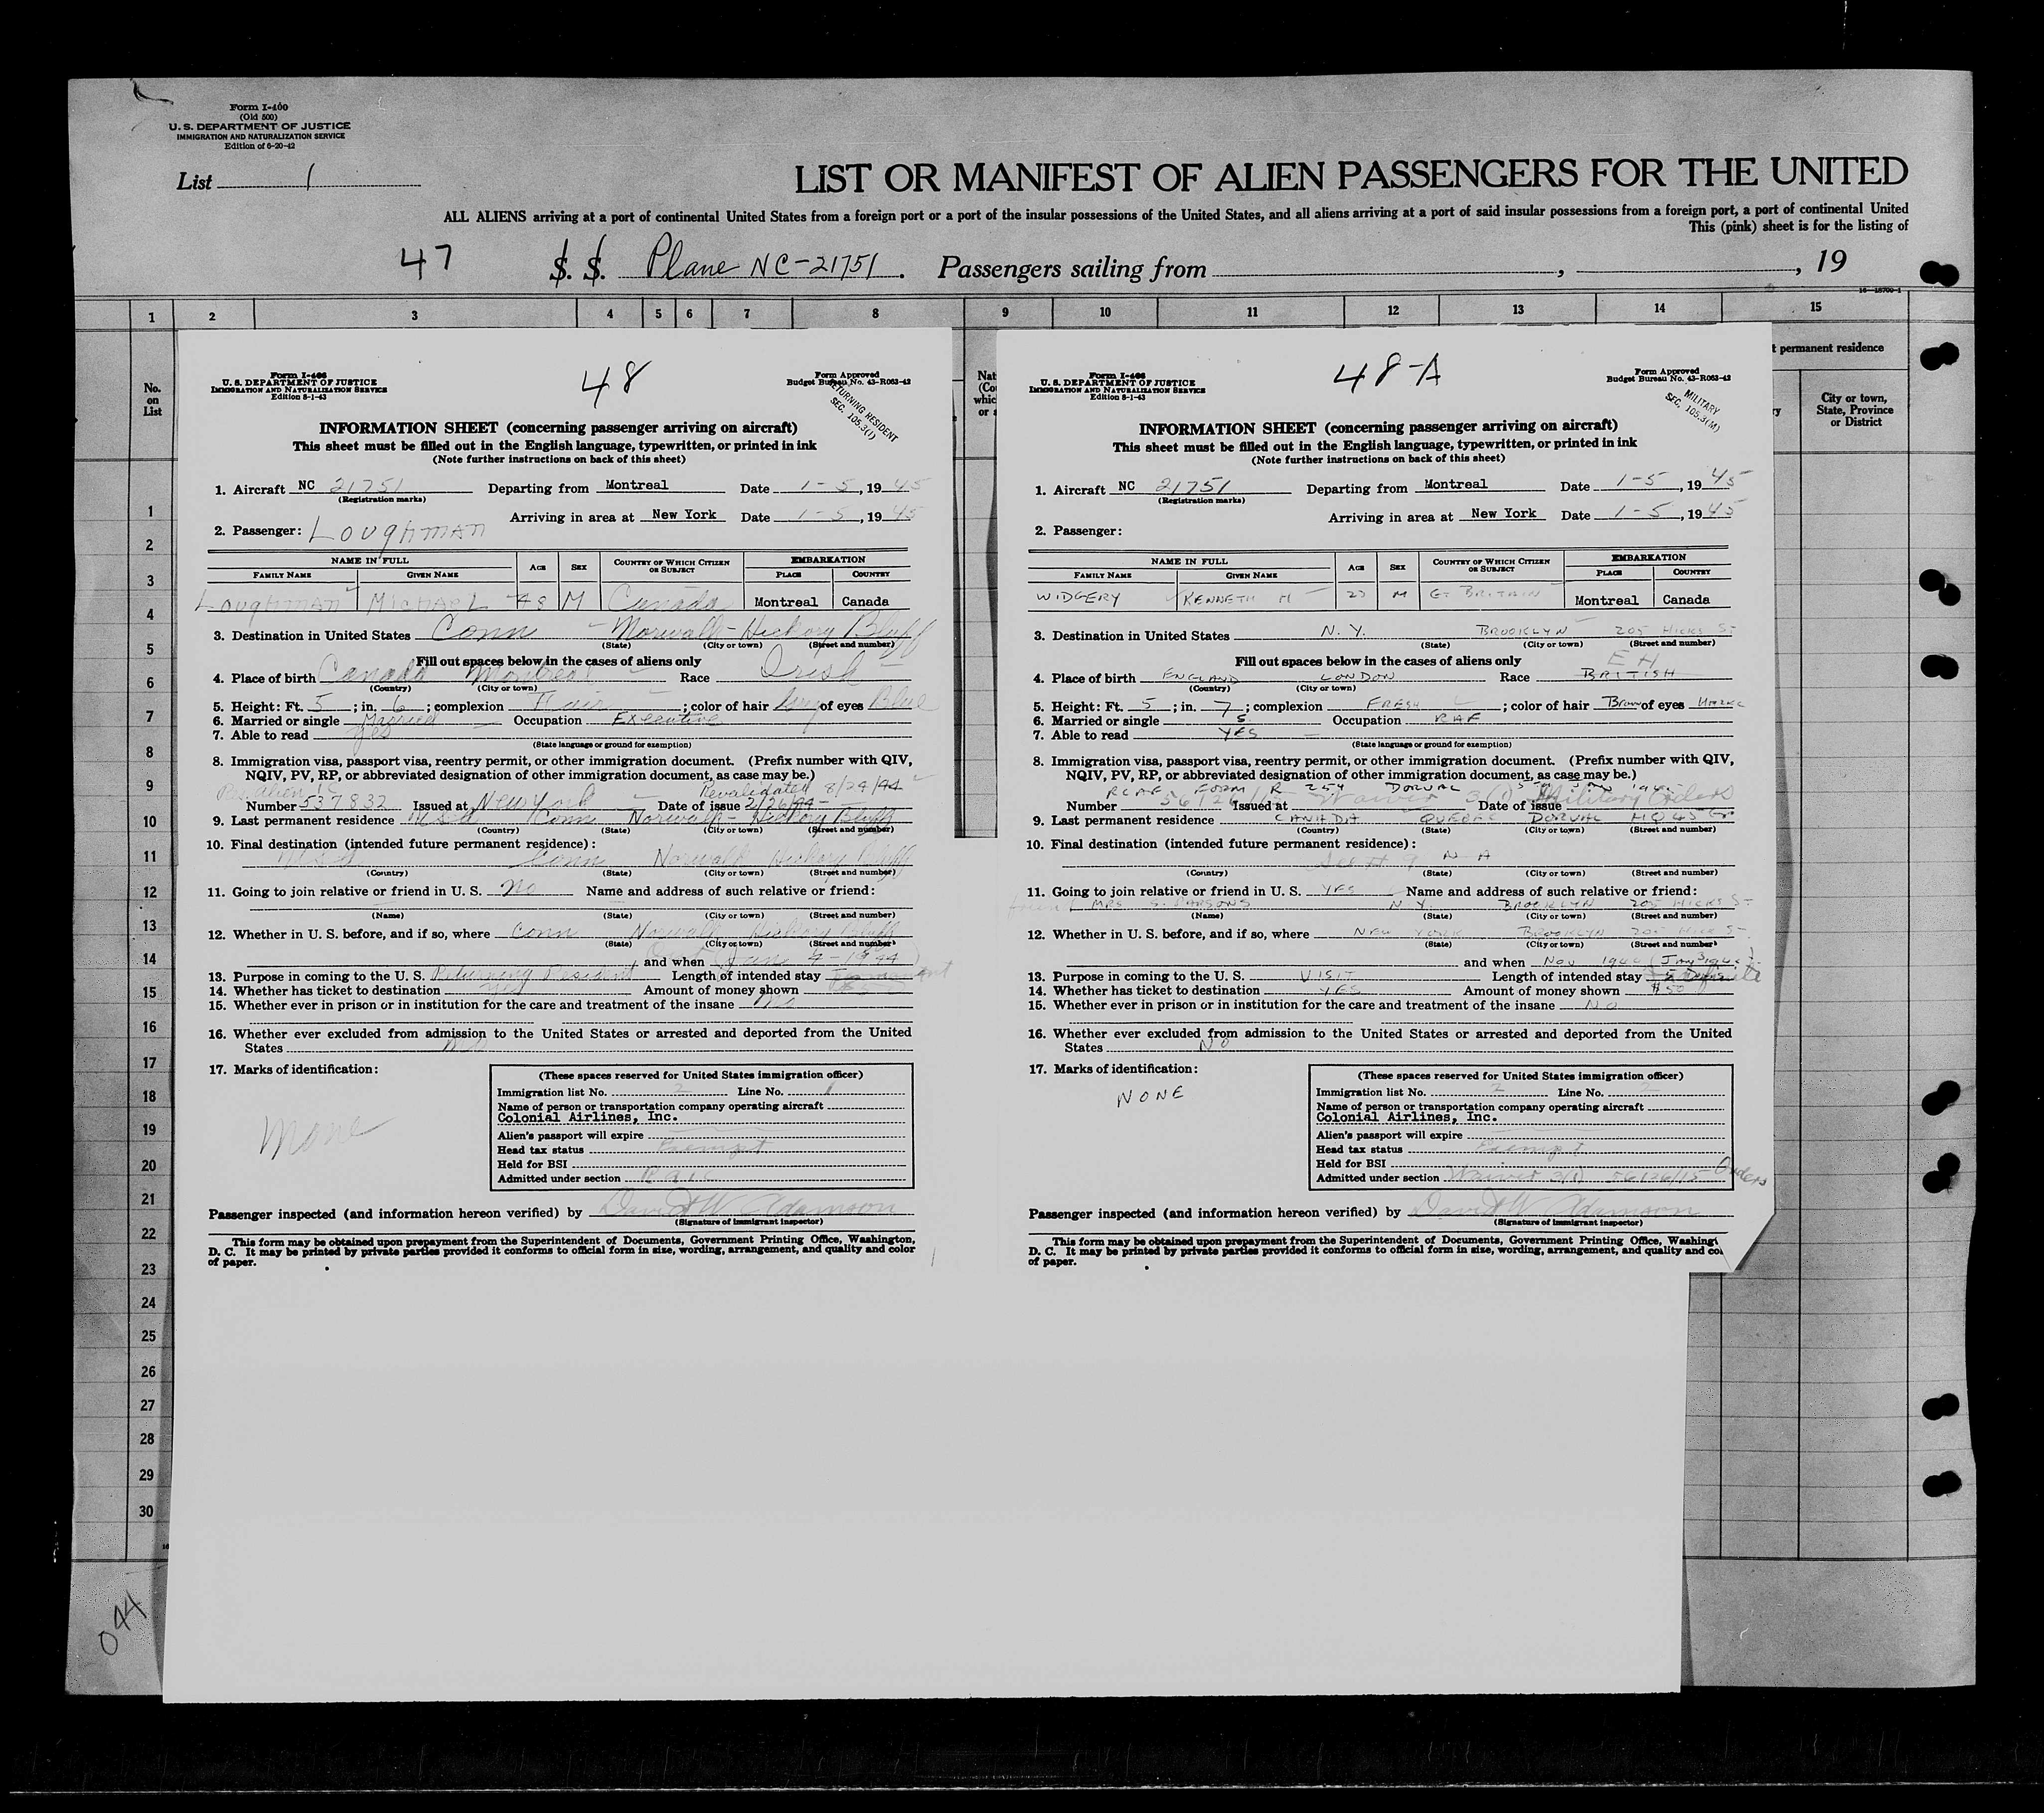 Form I-400
(Old 500)
U. S. DEPARTMENT OF JUSTICE
IMMIGRATION AND NATURALIZATION SERVICE
Edition of 6-20-42
List 1
LIST OR MANIFEST OF ALIEN PASSENGERS FOR THE UNITED
ALL ALIENS arriving at a port of continental United States from a foreign port or a port of the insular possessions of the United States, and all aliens arriving at a port of said insular possessions from a foreign port, a port of continental United
This (pink) sheet is for the listing of
47 S. S. Plane NC-21751. Passengers sailing from , , 19
1 2 3 4 5 6 7 8 9 10 11 12 13 14 15
No. on List
t permanent residence
City or town, State, Province or District
1
2
3
4
5
6
7
8
9
10
11
12
13
14
15
16
17
18
19
20
21
22
23
24
25
26
27
28
29
30
044
Form I-466
U. S. DEPARTMENT OF JUSTICE
IMMIGRATION AND NATURALIZATION SERVICE
Edition 8-1-43
48
Form Approved
Budget Bureau No. 43-R063-42
RETURNING RESIDENT
SEC. 105.3(1)
INFORMATION SHEET (concerning passenger arriving on aircraft)
This sheet must be filled out in the English language, typewritten, or printed in ink
(Note further instructions on back of this sheet)
1. Aircraft NC 21751 Departing from Montreal Date 1-5, 1945
(Registration marks)
Arriving in area at New York Date 1-5, 1945
2. Passenger: Loughman
NAME IN FULL AGE SEX COUNTRY OF WHICH CITIZEN OR SUBJECT EMBARKATION
FAMILY NAME GIVEN NAME PLACE COUNTRY
Loughman Michael 48 M Canada Montreal Canada
3. Destination in United States Conn - Norwalk - Hickory Bluff
(State) (City or town) (Street and number)
Fill out spaces below in the cases of aliens only
4. Place of birth Canada Montreal Race Irish
(Country) (City or town)
5. Height: Ft. 5; in. 6; complexion Fair; color of hair Grey of eyes Blue
6. Married or single Married Occupation Executive
7. Able to read Yes
(State language or ground for exemption)
8. Immigration visa, passport visa, reentry permit, or other immigration document. (Prefix number with QIV,
NQIV, PV, RP, or abbreviated designation of other immigration document, as case may be.)
Res. Alien Revalidated 8/29/44
Number 537832 Issued at New York Date of issue 2/26/44
9. Last permanent residence USA Conn Norwalk - Hickory Bluff
(Country) (State) (City or town) (Street and number)
10. Final destination (intended future permanent residence):
USA Conn Norwalk Hickory Bluff
(Country) (State) (City or town) (Street and number)
11. Going to join relative or friend in U. S. No Name and address of such relative or friend:
(Name) (State) (City or town) (Street and number)
12. Whether in U. S. before, and if so, where Conn Norwalk Hickory Bluff
(State) (City or town) (Street and number)
and when Jan 4-1944
13. Purpose in coming to the U. S. Returning Resident Length of intended stay Permanent
14. Whether has ticket to destination Yes Amount of money shown
15. Whether ever in prison or in institution for the care and treatment of the insane No
16. Whether ever excluded from admission to the United States or arrested and deported from the United
States No
17. Marks of identification:
None
(These spaces reserved for United States immigration officer)
Immigration list No. 2 Line No. 1
Name of person or transportation company operating aircraft
Colonial Airlines, Inc.
Alien's passport will expire
Head tax status Exempt
Held for BSI
Admitted under section
Passenger inspected (and information hereon verified) by David W Adamson
(Signature of immigrant inspector)
This form may be obtained upon prepayment from the Superintendent of Documents, Government Printing Office, Washington,
D. C. It may be printed by private parties provided it conforms to official form in size, wording, arrangement, and quality and color
of paper.
Form I-466
U. S. DEPARTMENT OF JUSTICE
IMMIGRATION AND NATURALIZATION SERVICE
Edition 8-1-43
48-A
Form Approved
Budget Bureau No. 43-R063-42
MILITARY
SEC. 105.3(M)
INFORMATION SHEET (concerning passenger arriving on aircraft)
This sheet must be filled out in the English language, typewritten, or printed in ink
(Note further instructions on back of this sheet)
1. Aircraft NC 21751 Departing from Montreal Date 1-5, 1945
(Registration marks)
Arriving in area at New York Date 1-5, 1945
2. Passenger:
NAME IN FULL AGE SEX COUNTRY OF WHICH CITIZEN OR SUBJECT EMBARKATION
FAMILY NAME GIVEN NAME PLACE COUNTRY
WIDGERY KENNETH M 23 M GT BRITAIN Montreal Canada
3. Destination in United States N.Y. BROOKLYN 205 HICKS ST
(State) (City or town) (Street and number)
Fill out spaces below in the cases of aliens only
EH
4. Place of birth ENGLAND LONDON Race BRITISH
(Country) (City or town)
5. Height: Ft. 5; in. 7; complexion FRESH; color of hair Brown of eyes HAZEL
6. Married or single S. Occupation RAF
7. Able to read YES
(State language or ground for exemption)
8. Immigration visa, passport visa, reentry permit, or other immigration document. (Prefix number with QIV,
NQIV, PV, RP, or abbreviated designation of other immigration document, as case may be.)
RCAF FORM R 254 DORVAL
Number 56126/15 Issued at Waiver 3(1) Date of issue Military Orders
9. Last permanent residence CANADA QUEBEC DORVAL HQ 45 GP
(Country) (State) (City or town) (Street and number)
10. Final destination (intended future permanent residence):
See # 9 N A
(Country) (State) (City or town) (Street and number)
11. Going to join relative or friend in U. S. YES Name and address of such relative or friend:
MRS S. PARSONS N Y. BROOKLYN 205 HICKS ST
(Name) (State) (City or town) (Street and number)
12. Whether in U. S. before, and if so, where NEW YORK BROOKLYN 205 HICKS ST
(State) (City or town) (Street and number)
and when NOV 1944
13. Purpose in coming to the U. S. VISIT Length of intended stay
14. Whether has ticket to destination YES Amount of money shown $50
15. Whether ever in prison or in institution for the care and treatment of the insane NO
16. Whether ever excluded from admission to the United States or arrested and deported from the United
States NO
17. Marks of identification:
NONE
(These spaces reserved for United States immigration officer)
Immigration list No. 2 Line No. 2
Name of person or transportation company operating aircraft
Colonial Airlines, Inc.
Alien's passport will expire
Head tax status Exempt
Held for BSI
Admitted under section Waiver 3(1) 56126/15 - Orders
Passenger inspected (and information hereon verified) by David W Adamson
(Signature of immigrant inspector)
This form may be obtained upon prepayment from the Superintendent of Documents, Government Printing Office, Washingt
D. C. It may be printed by private parties provided it conforms to official form in size, wording, arrangement, and quality and co
of paper.